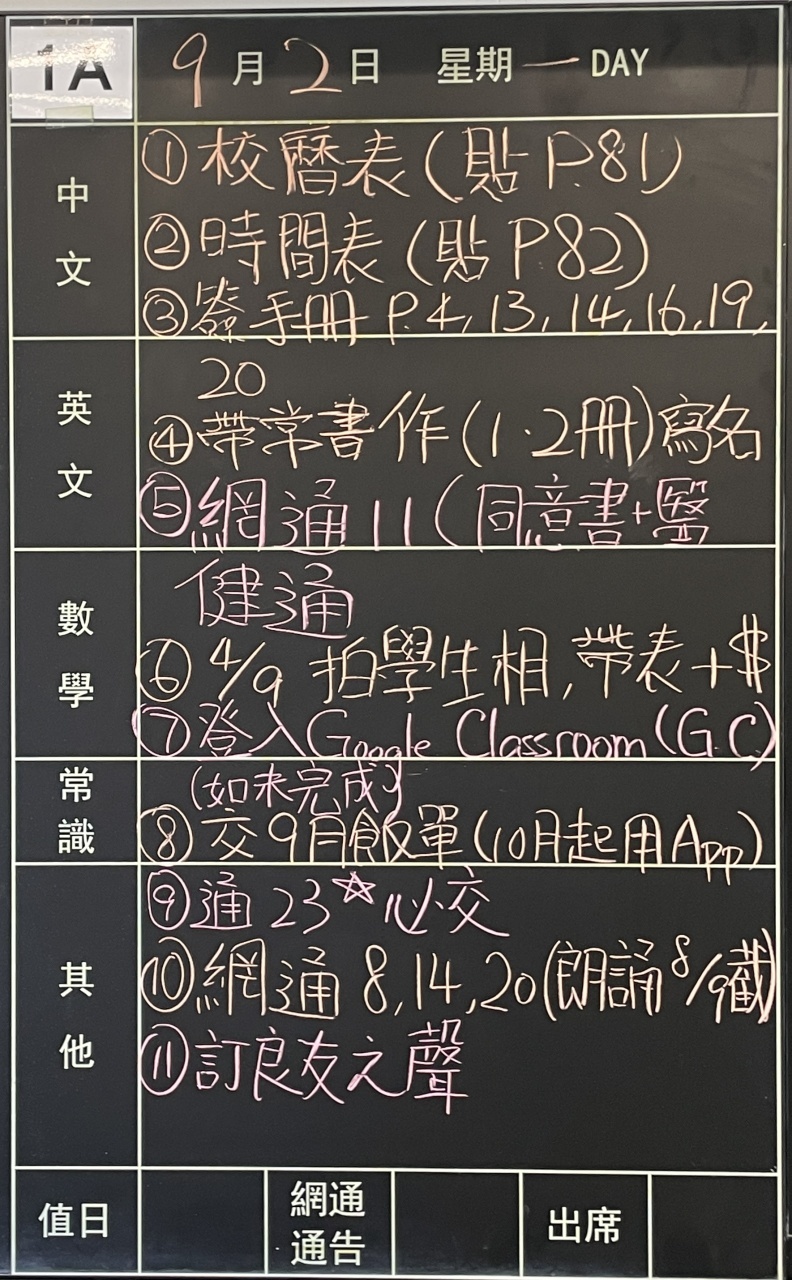 1A 9月2日 星期一 DAY
中文
①校曆表(貼P.81)
②時間表(貼P82)
③簽手冊 P.4, 13, 14, 16, 19,
英文
20
④帶常書作(1.2冊)寫名
⑤網通11(同意書+醫
數學
健通
⑥4/9 拍學生相,帶表+$
⑦登入Google Classroom(GC)
常識
(如未完成)
⑧交9月飯單(10月起用App)
其他
⑨通23☆必交
⑩網通8,14,20(朗誦8/9截)
⑪訂良友之聲
值日 網通通告 出席